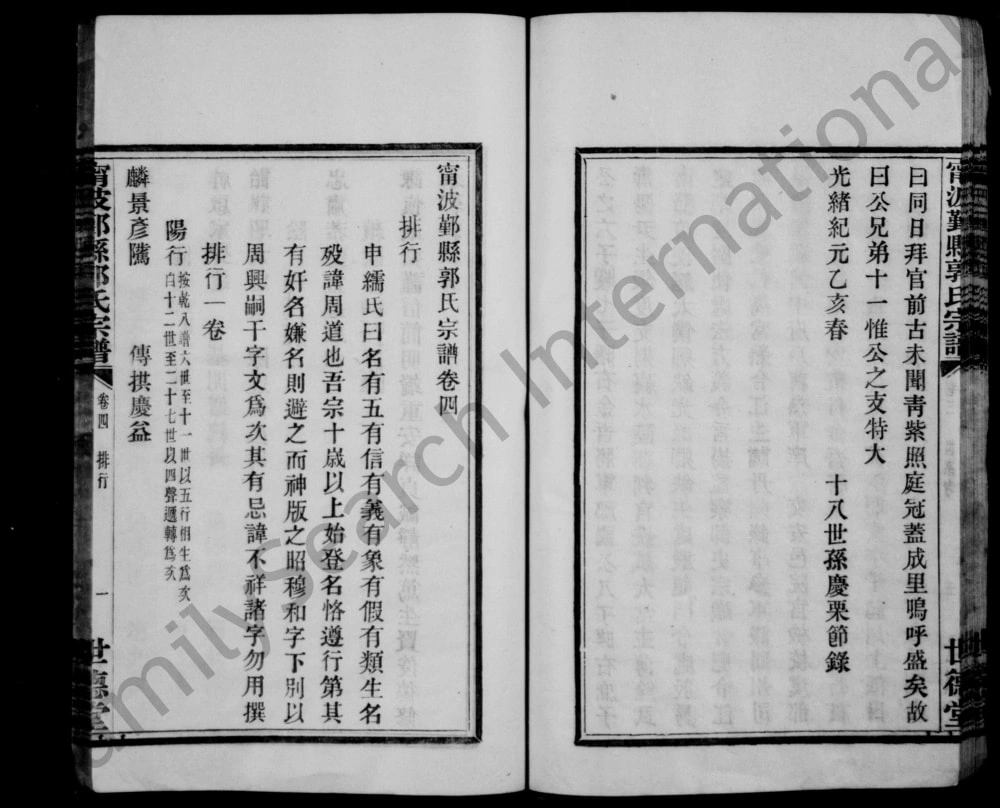 甯波鄞縣郭氏宗譜
世德堂
曰同日拜官前古未聞靑紫照庭冠蓋成里嗚呼盛矣故
曰公兄弟十一惟公之支特大
光緒紀元乙亥春　十八世孫慶栗節錄
甯波鄞縣郭氏宗譜卷四
排行
申繻氏曰名有五有信有義有象有假有類生名
歿諱周道也吾宗十歲以上始登名恪遵行第其
有奸名嫌名則避之而神版之昭穆和字下別以
周興嗣千字文爲次其有忌諱不祥諸字勿用撰
排行一卷
陽行
按乾八譜六世至十一世以五行相生爲次
自十二世至二十七世以四聲遞轉爲次
麟景彥隲　傳拱慶益
甯波鄞縣郭氏宗譜
卷四　排行
一
世德堂
FamilySearch International